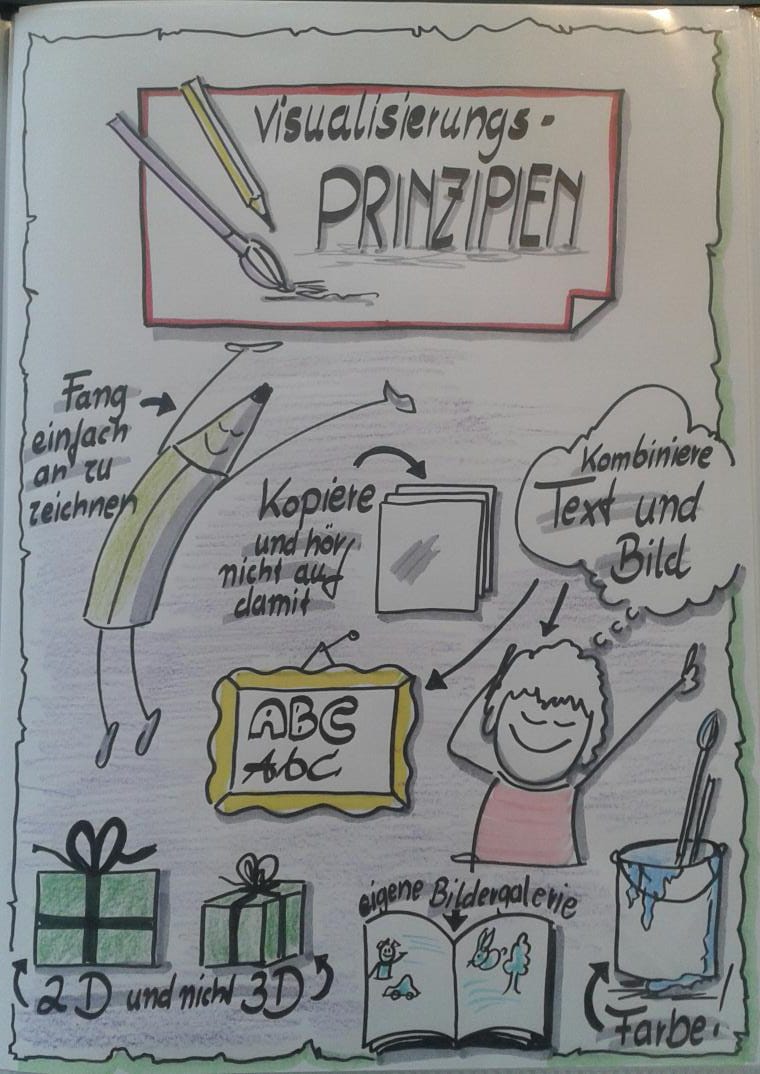 Visualisierungs-
PRINZIPIEN
Fang
einfach
an zu
zeichnen
Kopiere
und hör
nicht auf
damit
Kombiniere
Text und
Bild
ABC
Abc
2D und nicht 3D
eigene Bildergalerie
Farbe!